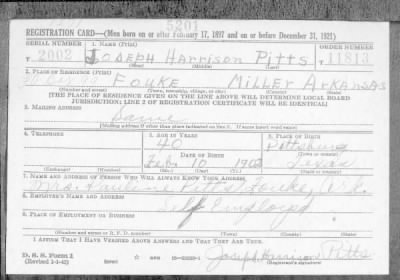 5201
REGISTRATION CARD—(Men born on or after February 17, 1897 and on or before December 31, 1921)
SERIAL NUMBER 1. NAME (Print) ORDER NUMBER
T 2002 JOSEPH Harrison Pitts 11813
(First) (Middle) (Last)
2. PLACE OF RESIDENCE (Print)
FOUKE MILLER ARKANSAS
(Number and street) (Town, township, village, or city) (County) (State)
[THE PLACE OF RESIDENCE GIVEN ON THE LINE ABOVE WILL DETERMINE LOCAL BOARD
JURISDICTION; LINE 2 OF REGISTRATION CERTIFICATE WILL BE IDENTICAL]
3. MAILING ADDRESS
Same
[Mailing address if other than place indicated on line 2. If same insert word same]
4. TELEPHONE 5. AGE IN YEARS 6. PLACE OF BIRTH
40 Pittsburg
DATE OF BIRTH (Town or county)
Feb. 10 1902 Texas
(Exchange) (Number) (Mo.) (Day) (Yr.) (State or country)
7. NAME AND ADDRESS OF PERSON WHO WILL ALWAYS KNOW YOUR ADDRESS
Mrs. Pauline Pitts, Fouke, Ark.
8. EMPLOYER'S NAME AND ADDRESS
Self Employed
9. PLACE OF EMPLOYMENT OR BUSINESS
(Number and street or R. F. D. number) (Town) (County) (State)
I AFFIRM THAT I HAVE VERIFIED ABOVE ANSWERS AND THAT THEY ARE TRUE.
D. S. S. Form 1
(Revised 1-1-42) (over) Joseph Harrison Pitts
(Registrant's signature)